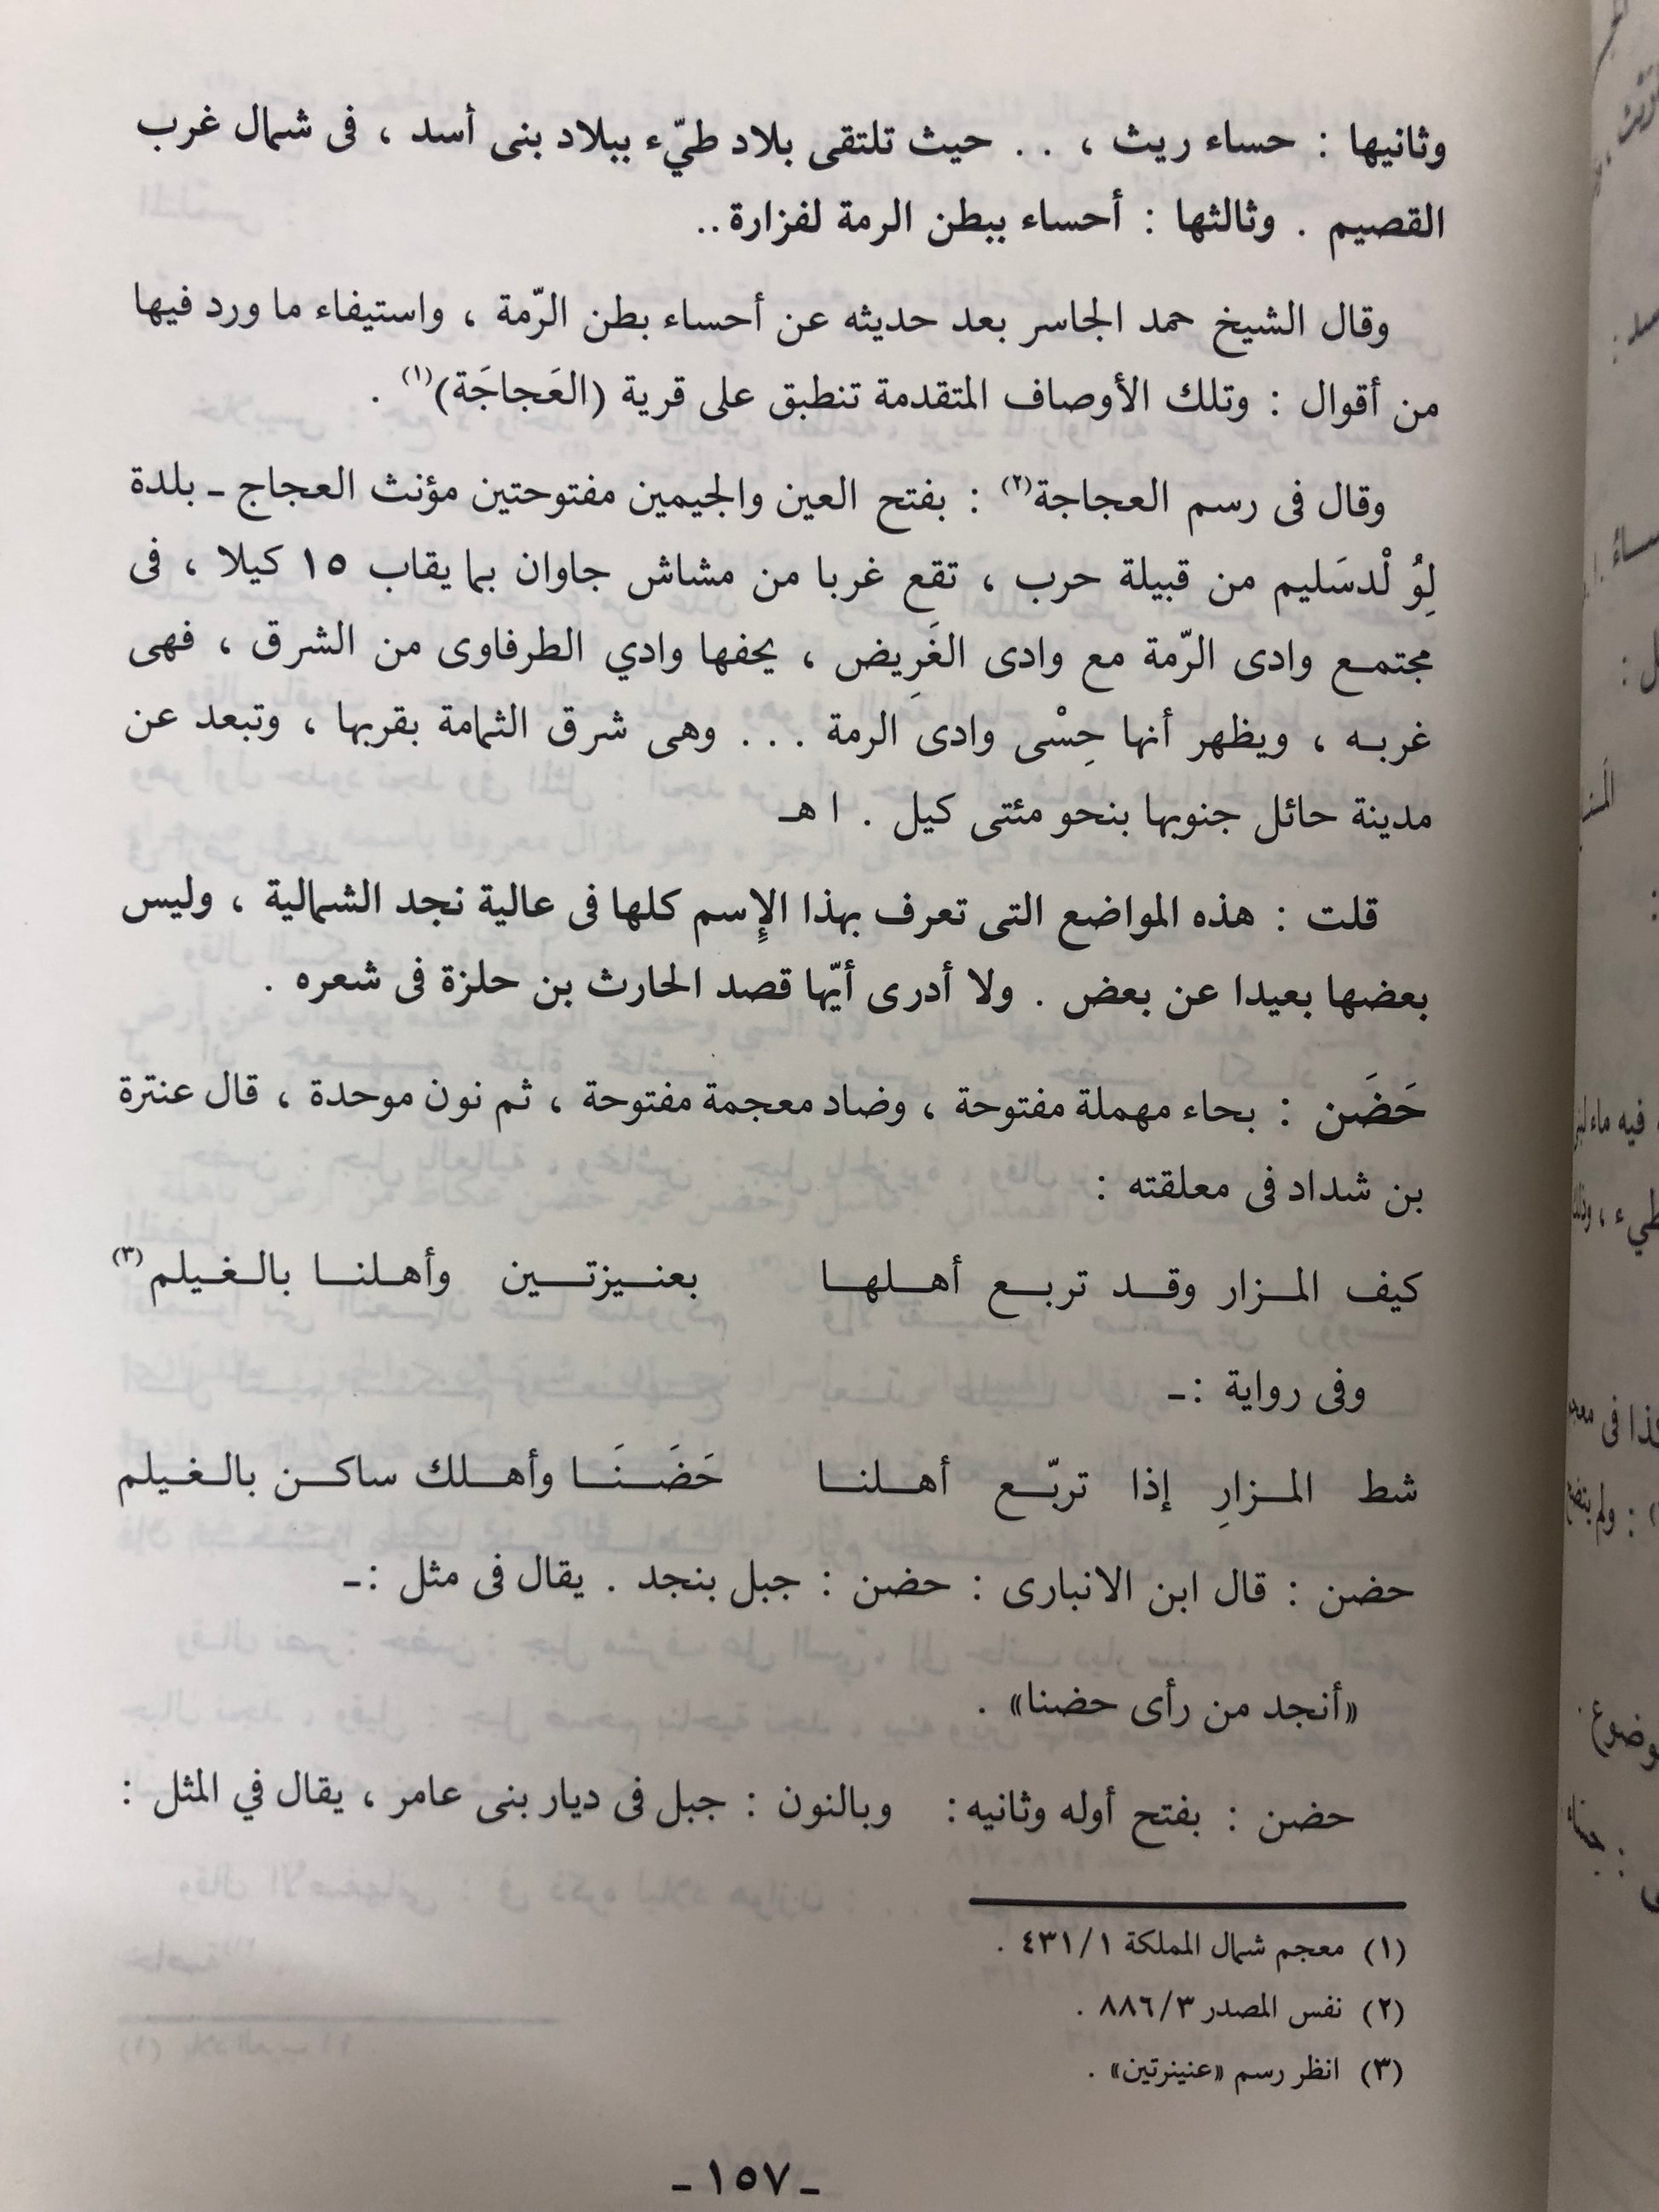 وثانيها : حساء ريث ، . . حيث تلتقى بلاد طيّء ببلاد بنى أسد ، فى شمال غرب
القصيم . وثالثها : أحساء ببطن الرمة لفزارة ..
وقال الشيخ حمد الجاسر بعد حديثه عن أحساء بطن الرّمة ، واستيفاء ما ورد فيها
من أقوال : وتلك الأوصاف المتقدمة تنطبق على قرية (العَجاجَة)(١) .
وقال فى رسم العجاجة(٢) : بفتح العين والجيمين مفتوحتين مؤنث العجاج ـ بلدة
لِوُ لْدسَليم من قبيلة حرب ، تقع غربا من مشاش جاوان بما يقاب ١٥ كيلا ، فى
مجتمع وادى الرّمة مع وادى الغَرِيض ، يحفها وادي الطرفاوى من الشرق ، فهى
غربه ، ويظهر أنها حِسْى وادى الرمة . . . وهى شرق الثمامة بقربها ، وتبعد عن
مدينة حائل جنوبها بنحو مئتى كيل . ا هـ
قلت : هذه المواضع التى تعرف بهذا الإِسم كلها فى عالية نجد الشمالية ، وليس
بعضها بعيدا عن بعض . ولا أدرى أيّها قصد الحارث بن حلزة فى شعره .
حَضَن : بحاء مهملة مفتوحة ، وضاد معجمة مفتوحة ، ثم نون موحدة ، قال عنترة
بن شداد فى معلقته :
كيف المزار وقد تربع أهلها بعنيزتين وأهلنا بالغيلم(٣)
وفى رواية :ـ
شط المزارِ إذا تربّع أهلنا حَضَنَا وأهلك ساكن بالغيلم
حضن : قال ابن الانبارى : حضن : جبل بنجد . يقال فى مثل :ـ
«أنجد من رأى حضنا» .
حضن : بفتح أوله وثانيه : وبالنون : جبل فى ديار بنى عامر ، يقال في المثل :
(١) معجم شمال المملكة ٤٣١/١ .
(٢) نفس المصدر ٨٨٦/٣ .
(٣) انظر رسم «عنينرتين» .
ـ ١٥٧ ـ